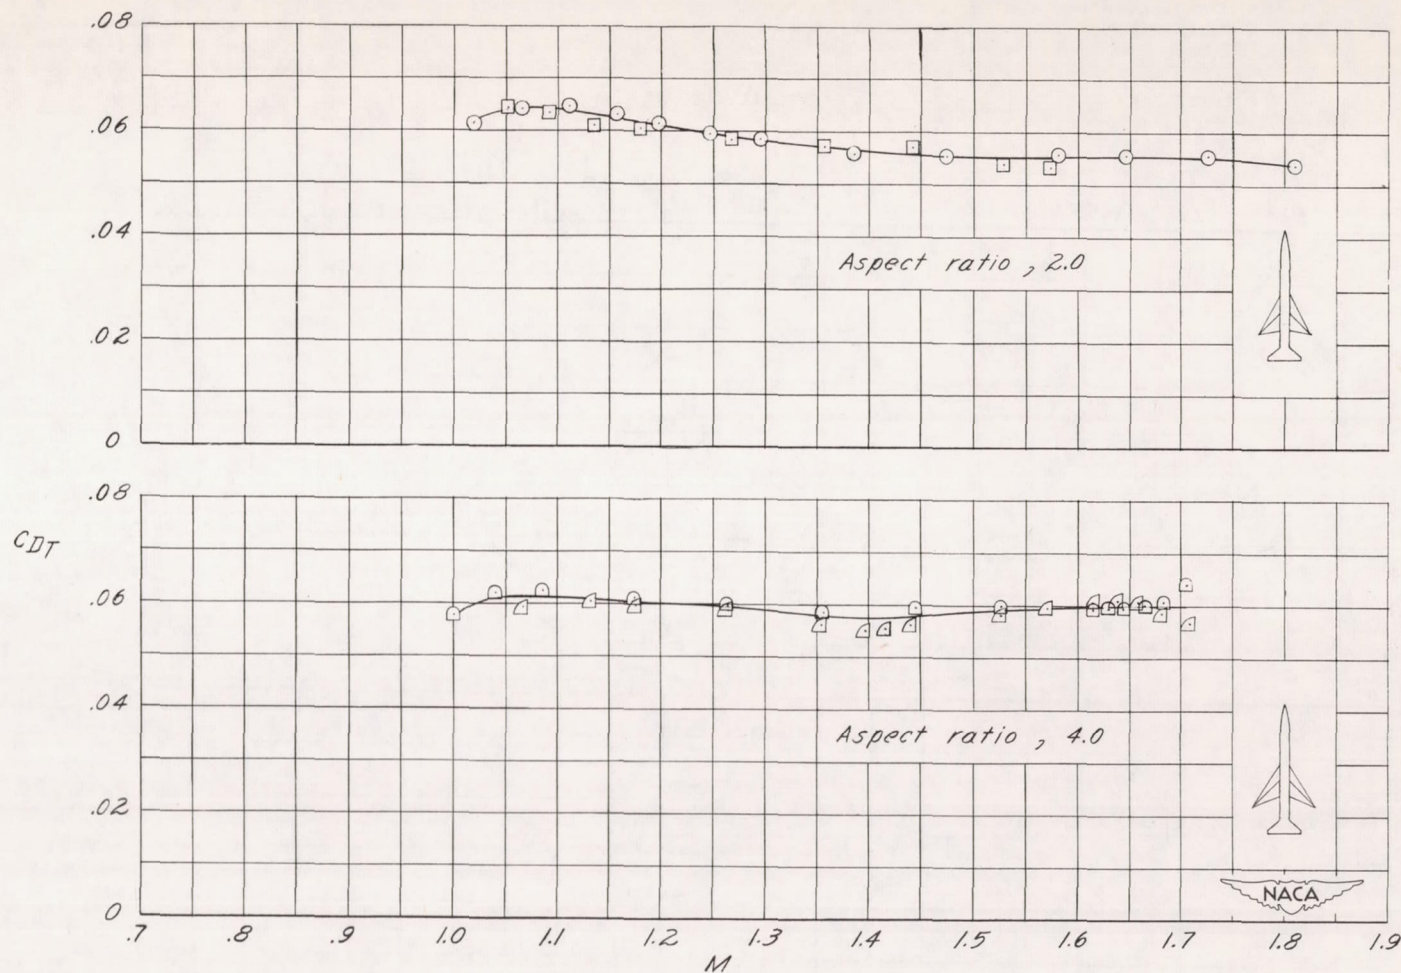 .08
.06
.04
Aspect ratio , 2.0
.02
0
.08
CDT
.06
.04
Aspect ratio , 4.0
.02
NACA
0
.7 .8 .9 1.0 1.1 1.2 1.3 1.4 1.5 1.6 1.7 1.8 1.9
M